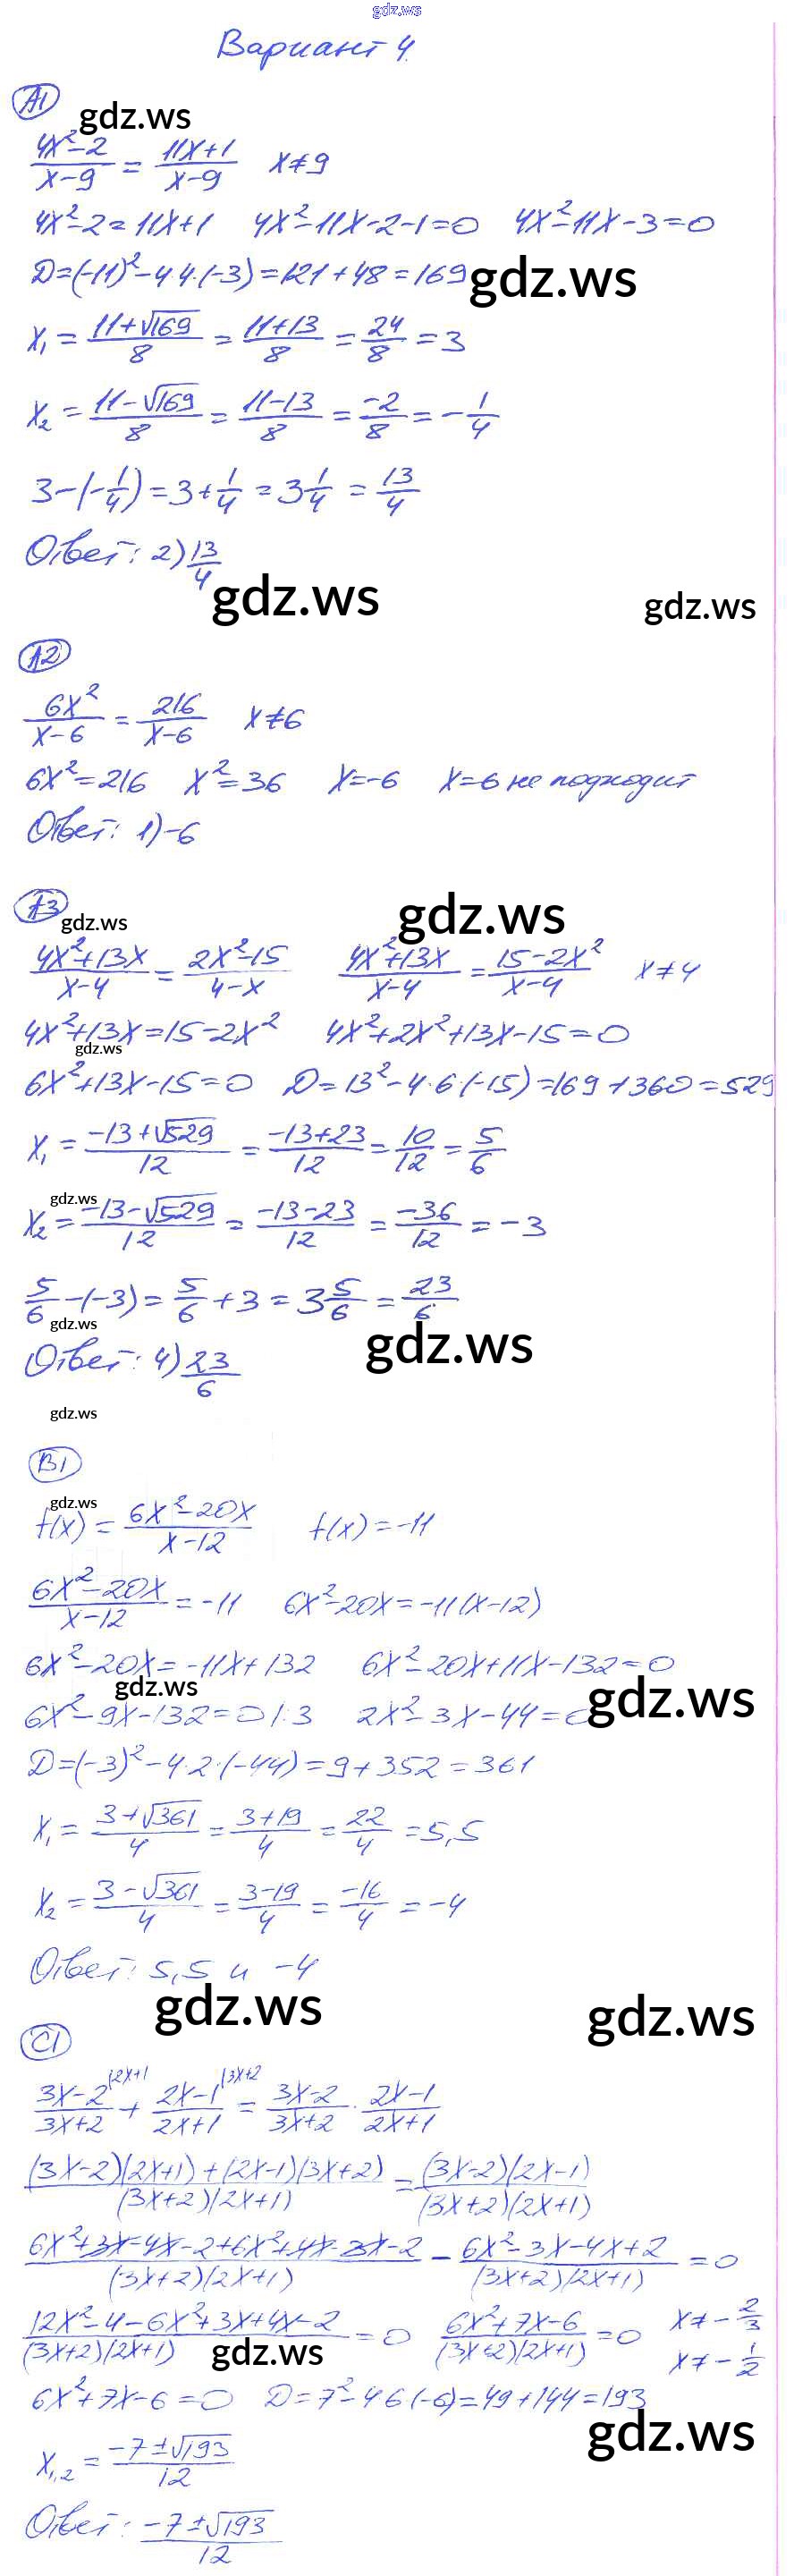 gdz.ws
Вариант 4.
А1
gdz.ws
(4x²-2)/(x-9) = (11x+1)/(x-9) x≠9
4x²-2=11x+1 4x²-11x-2-1=0 4x²-11x-3=0
Д=(-11)²-4·4·(-3)=121+48=169
gdz.ws
x₁ = (11+√169)/8 = (11+13)/8 = 24/8 = 3
x₂ = (11-√169)/8 = (11-13)/8 = -2/8 = -1/4
3-(-1/4) = 3+1/4 = 3 1/4 = 13/4
Ответ: 2) 13/4
gdz.ws
gdz.ws
А2
6x²/(x-6) = 216/(x-6) x≠6
6x²=216 x²=36 x=-6 x=6 не подходит
Ответ: 1) -6
А3
gdz.ws
gdz.ws
(4x²+13x)/(x-4) = (2x²-15)/(4-x) (4x²+13x)/(x-4) = (15-2x²)/(x-4) x≠4
4x²+13x=15-2x² 4x²+2x²+13x-15=0
gdz.ws
6x²+13x-15=0 Д=13²-4·6·(-15)=169+360=529
x₁ = (-13+√529)/12 = (-13+23)/12 = 10/12 = 5/6
gdz.ws
x₂ = (-13-√529)/12 = (-13-23)/12 = -36/12 = -3
5/6-(-3) = 5/6+3 = 3 5/6 = 23/6
gdz.ws
gdz.ws
Ответ: 4) 23/6
gdz.ws
В1
gdz.ws
f(x) = (6x²-20x)/(x-12) f(x)=-11
(6x²-20x)/(x-12) = -11 6x²-20x=-11(x-12)
6x²-20x=-11x+132 6x²-20x+11x-132=0
gdz.ws
gdz.ws
6x²-9x-132=0 |:3 2x²-3x-44=0
Д=(-3)²-4·2·(-44)=9+352=361
x₁ = (3+√361)/4 = (3+19)/4 = 22/4 = 5,5
x₂ = (3-√361)/4 = (3-19)/4 = -16/4 = -4
Ответ: 5,5 и -4
gdz.ws
gdz.ws
С1
(3x-2)/(3x+2) |2x+1 + (2x-1)/(2x+1) |3x+2 = (3x-2)/(3x+2) · (2x-1)/(2x+1)
((3x-2)(2x+1)+(2x-1)(3x+2))/((3x+2)(2x+1)) = ((3x-2)(2x-1))/((3x+2)(2x+1))
(6x²+3x-4x-2+6x²+4x-3x-2)/((3x+2)(2x+1)) - (6x²-3x-4x+2)/((3x+2)(2x+1)) = 0
(12x²-4-6x²+3x+4x-2)/((3x+2)(2x+1)) = 0 (6x²+7x-6)/((3x+2)(2x+1)) = 0 x≠-2/3
x≠-1/2
gdz.ws
6x²+7x-6=0 Д=7²-4·6·(-6)=49+144=193
gdz.ws
x₁,₂ = (-7±√193)/12
Ответ: (-7±√193)/12